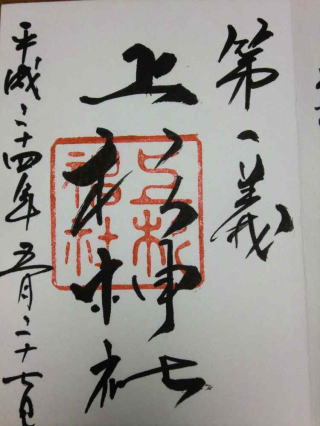 第一義
上杉神社
上杉神社
平成二十四年五月二十七日